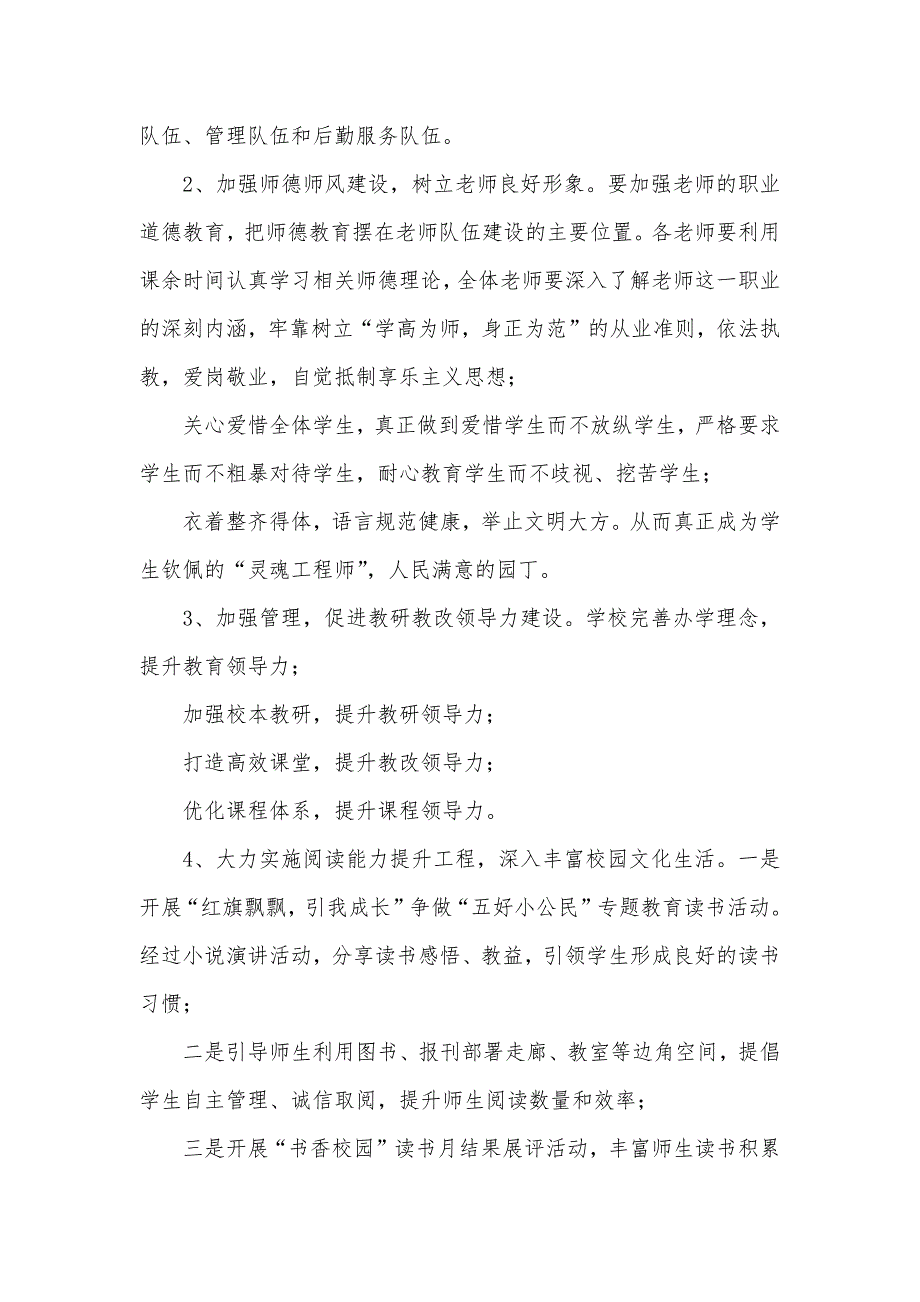 队伍、管理队伍和后勤服务队伍。
2、加强师德师风建设，树立老师良好形象。要加强老师的职业
道德教育，把师德教育摆在老师队伍建设的主要位置。各老师要利用
课余时间认真学习相关师德理论，全体老师要深入了解老师这一职业
的深刻内涵，牢靠树立“学高为师，身正为范”的从业准则，依法执
教，爱岗敬业，自觉抵制享乐主义思想；
关心爱惜全体学生，真正做到爱惜学生而不放纵学生，严格要求
学生而不粗暴对待学生，耐心教育学生而不歧视、挖苦学生；
衣着整齐得体，语言规范健康，举止文明大方。从而真正成为学
生钦佩的“灵魂工程师”，人民满意的园丁。
3、加强管理，促进教研教改领导力建设。学校完善办学理念，
提升教育领导力；
加强校本教研，提升教研领导力；
打造高效课堂，提升教改领导力；
优化课程体系，提升课程领导力。
4、大力实施阅读能力提升工程，深入丰富校园文化生活。一是
开展“红旗飘飘，引我成长”争做“五好小公民”专题教育读书活动。
经过小说演讲活动，分享读书感悟、教益，引领学生形成良好的读书
习惯；
二是引导师生利用图书、报刊部署走廊、教室等边角空间，提倡
学生自主管理、诚信取阅，提升师生阅读数量和效率；
三是开展“书香校园”读书月结果展评活动，丰富师生读书积累